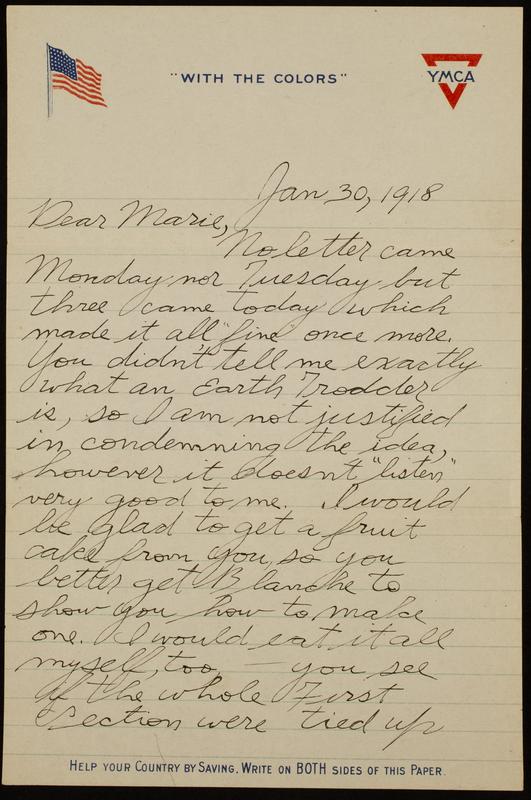 "WITH THE COLORS"
YMCA
Jan 30, 1918
Dear Marie,
No letter came
Monday nor Tuesday but
three came today which
made it all "fine" once more.
You didn't tell me exactly
what an Earth Trodder
is, so I am not justified
in condemning the idea,
however it doesn't "listen"
very good to me. I would
be glad to get a fruit
cake from you, so you
better get Blanche to
show you how to make
one. I would eat it all
myself, too, — you see
if the whole First
Section were tied up
HELP YOUR COUNTRY BY SAVING. WRITE ON BOTH SIDES OF THIS PAPER.